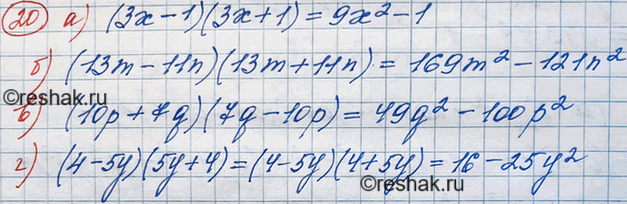 20 а) (3x-1)(3x+1) = 9x² - 1
б) (13m-11n)(13m+11n) = 169m² - 121n²
©reshak.ru
в) (10p+7q)(7q-10p) = 49q² - 100p²
г) (4-5y)(5y+4) = (4-5y)(4+5y) = 16 - 25y²
©reshak.ru